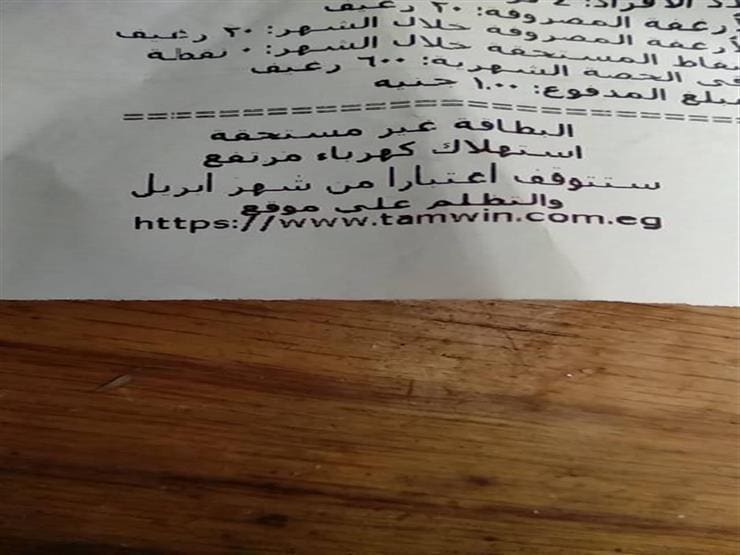 الأفراد:
أرغفة المصروفة: ٢٠ رغيف
أرغفة المصروفة خلال الشهر: ٢٠ رغيف
نقاط المستحقة خلال الشهر: ٠ نقطة
في الحصة الشهرية: ٦٠٠ رغيف
مبلغ المدفوع: ١.٠٠ جنيه
================================
البطاقة غير مستحقه
استهلاك كهرباء مرتفع
ستتوقف اعتبارا من شهر ابريل
والتظلم على موقع
https://www.tamwin.com.eg